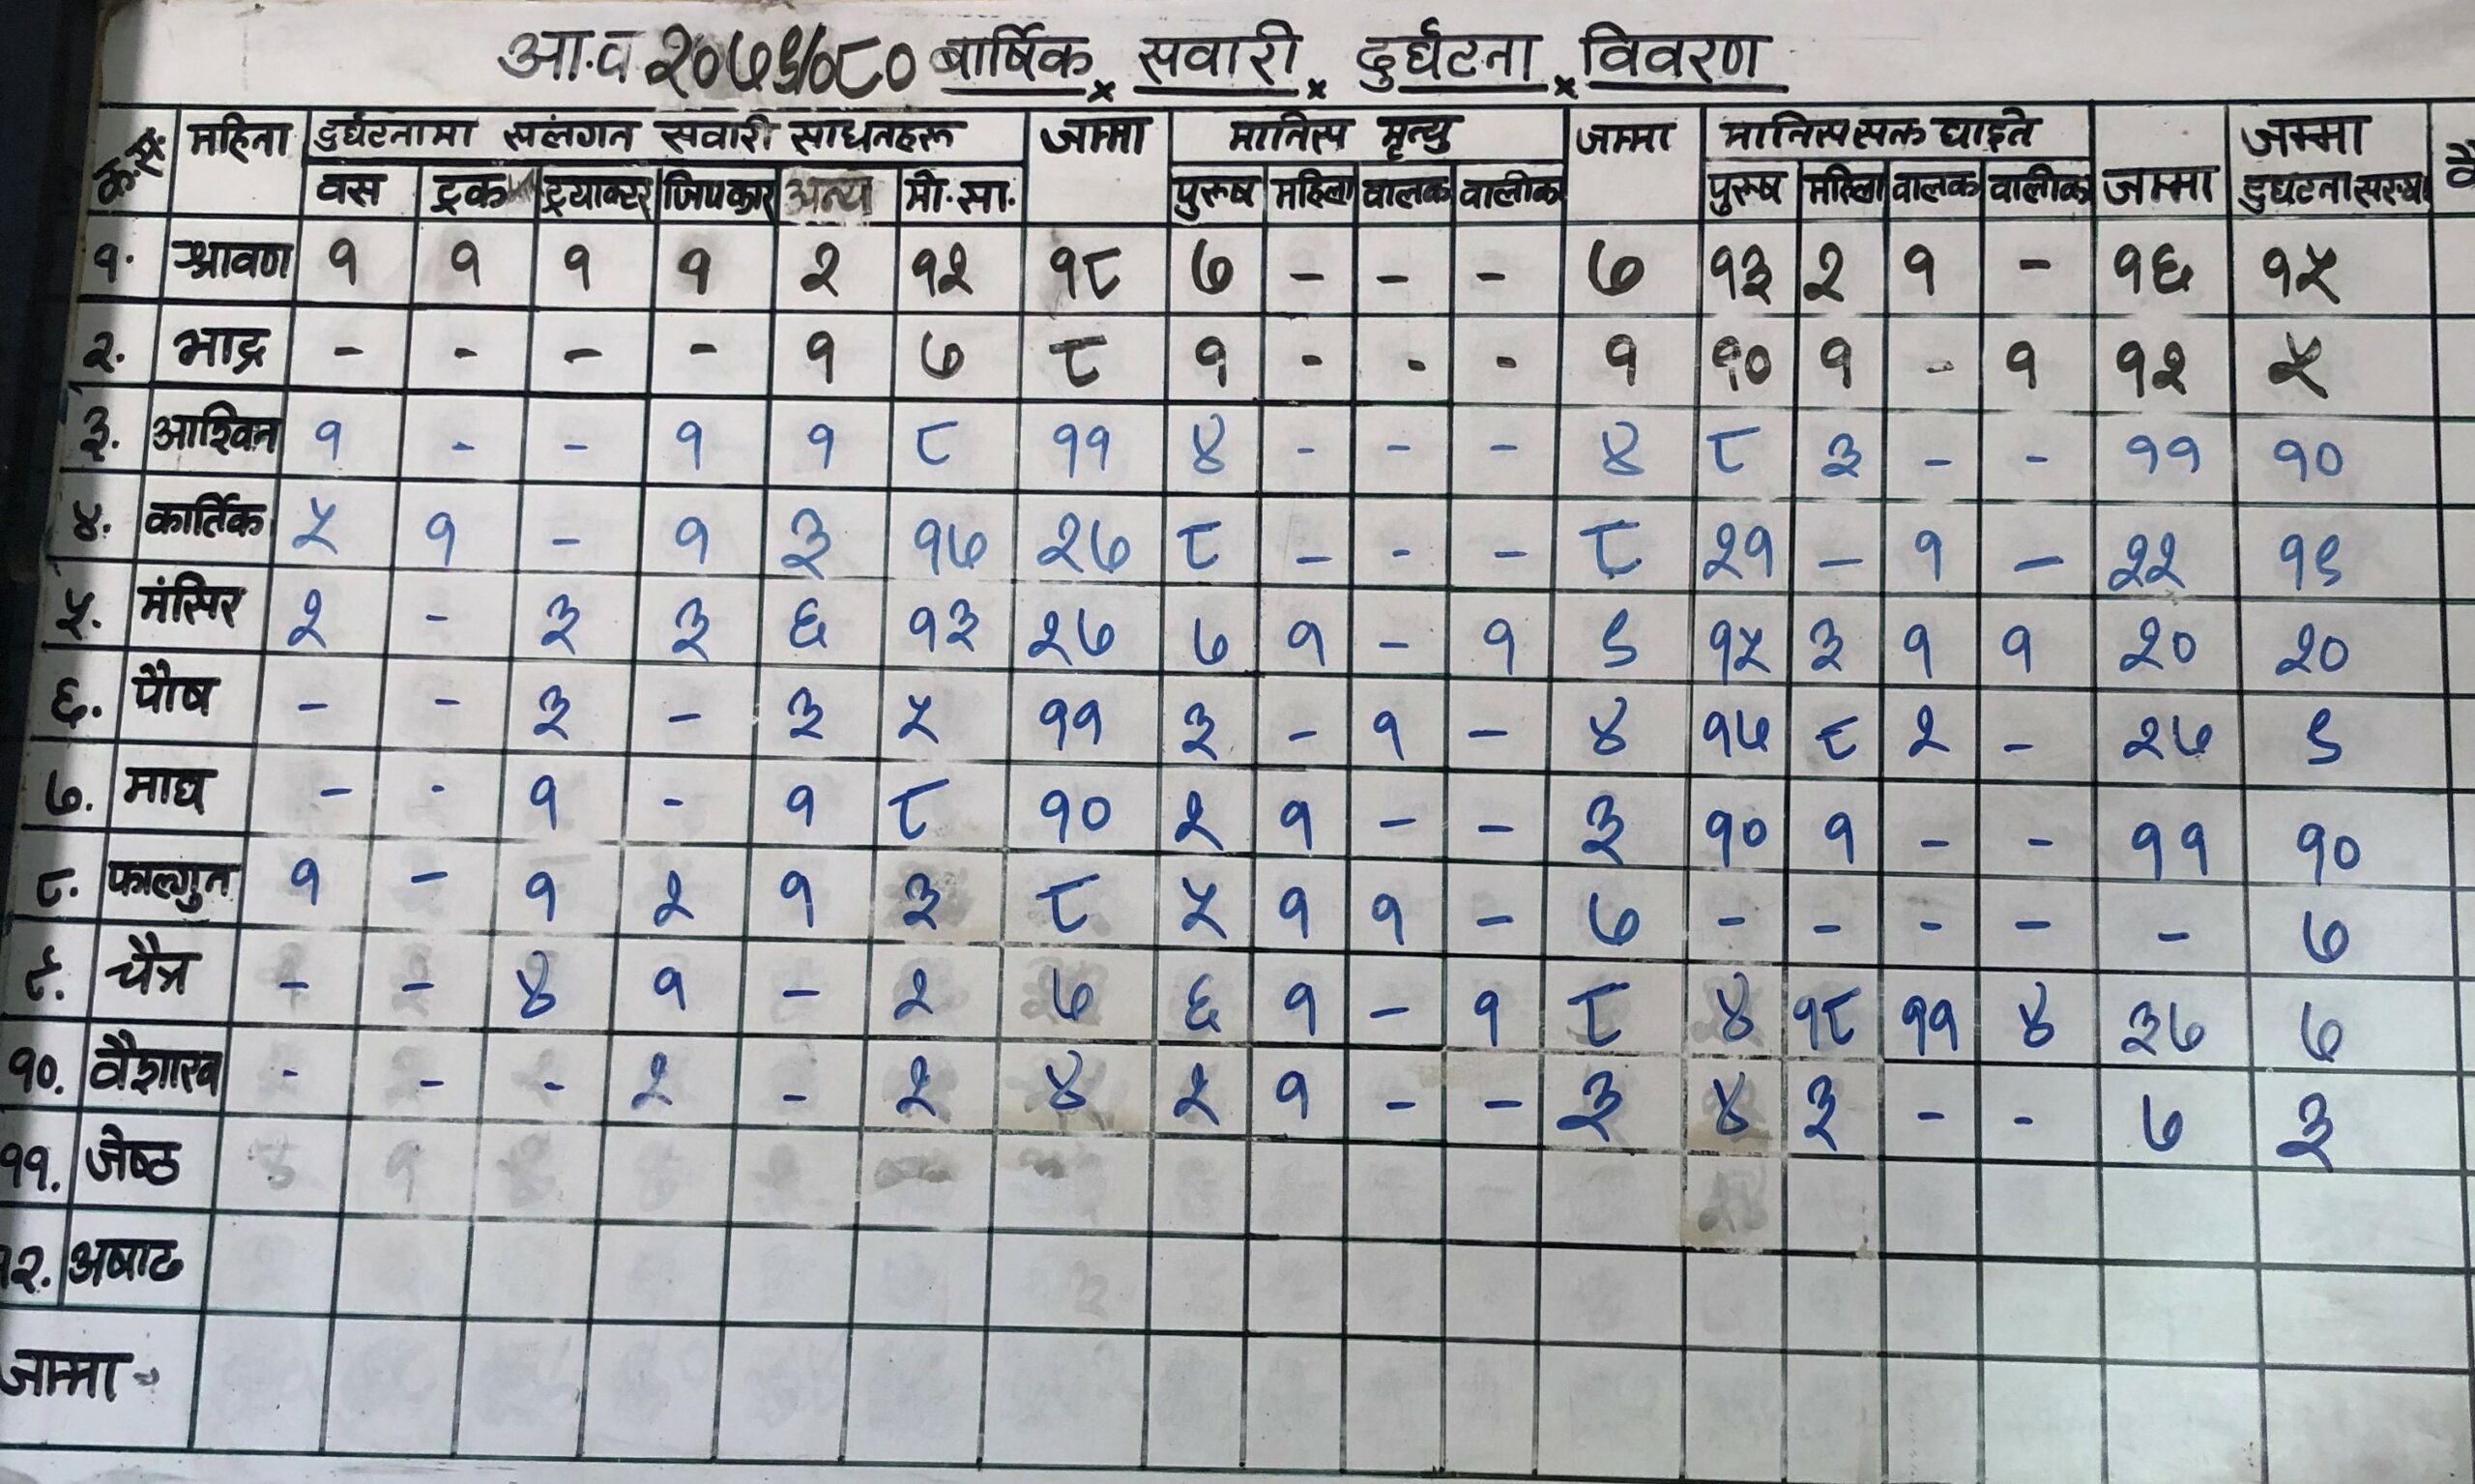 आ.व २०७९/०८० बार्षिक सवारी दुर्घटना विवरण
क.सं. महिना दुर्घटनामा संलंगन सवारी साधनहरू जाम्मा मानिस मृत्यु जाम्मा मानिससक्त घाइते जाम्मा जम्मा दुघटना संख्या
वस ट्रक ट्र्याक्टर जिपकार अन्य मो.सा. पुरुष महिला वालक वालीका पुरुष महिला वालक वालीका
१. श्रावण १ १ १ १ २ १२ १८ ७ - - - ७ १३ २ १ - १६ १५
२. भाद्र - - - - १ ७ ८ १ - - - १ १० १ - १ १२ ५
३. आश्विन १ - - १ १ ८ ११ ४ - - - ४ ८ ३ - - ११ १०
४. कार्तिक ५ १ - १ ३ १७ २७ ८ - - - ८ २१ - १ - २२ १९
५. मंसिर २ - ३ ३ ६ १३ २७ ७ १ - १ ९ १५ ३ १ १ २० २०
६. पौष - - ३ - ३ ५ ११ ३ - १ - ४ १७ ८ २ - २७ ९
७. माघ - - १ - १ ८ १० २ १ - - ३ १० १ - - ११ १०
८. फाल्गुन १ - १ २ १ ३ ८ ५ १ १ - ७ - - - - - ७
९. चैत्र - - ४ १ - २ ७ ६ १ - १ ८ ४ १८ ११ ४ ३७ ७
१०. वैशाख - - - २ - २ ४ २ १ - - ३ ४ ३ - - ७ ३
११. जेष्ठ
१२. अषाढ
जाम्मा -